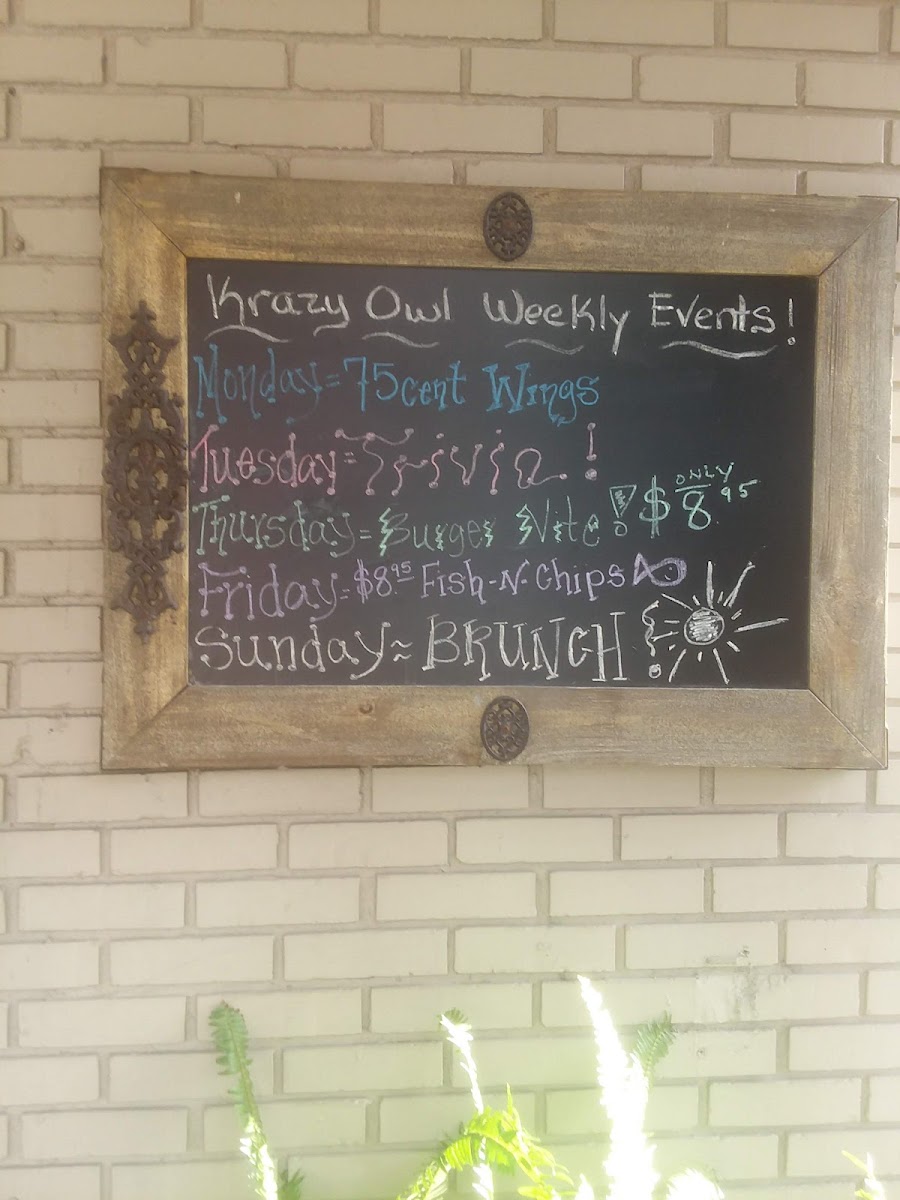 Krazy Owl Weekly Events!
Monday = 75cent Wings
Tuesday = Trivia!
Thursday = Burger Nite! $ ONLY 8.95
Friday = $8.95 Fish-N-Chips
Sunday ≈ BRUNCH!